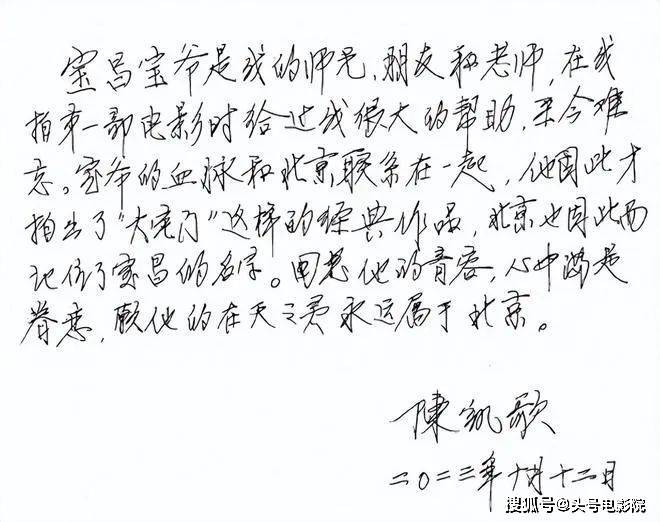 宝昌宝爷是我的师兄、朋友和老师，在我
拍第一部电影时给过我很大的帮助，至今难
忘。宝爷的血脉和北京联系在一起，他因此才
拍出了“大宅门”这样的经典作品，北京也因此而
记住了宝昌的名字。回想他的音容，心中满是
眷恋，愿他的在天之灵永远属于北京。
陳凯歌
二〇二三年十月十二日
搜狐号@头号电影院